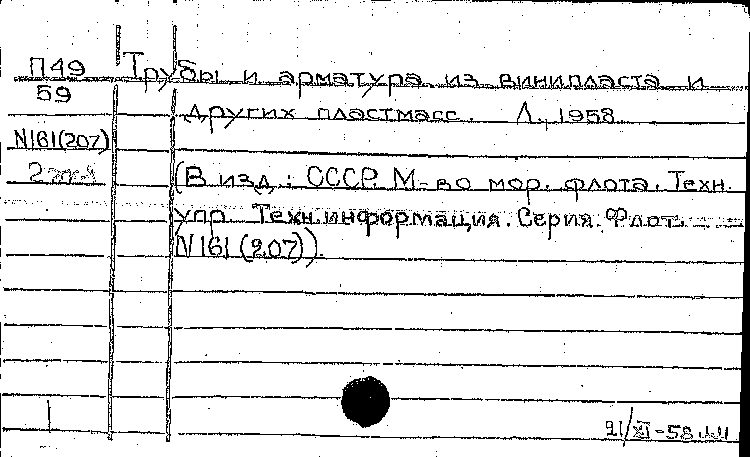 П49
59
N161(207)
2 экз
Трубы и арматура из винипласта и
других пластмасс. Л., 1958.
(В изд.: СССР. М-во мор. флота. Техн.
упр. Техн.информация. Серия. Флот.
N161(207)).
21/XI-58